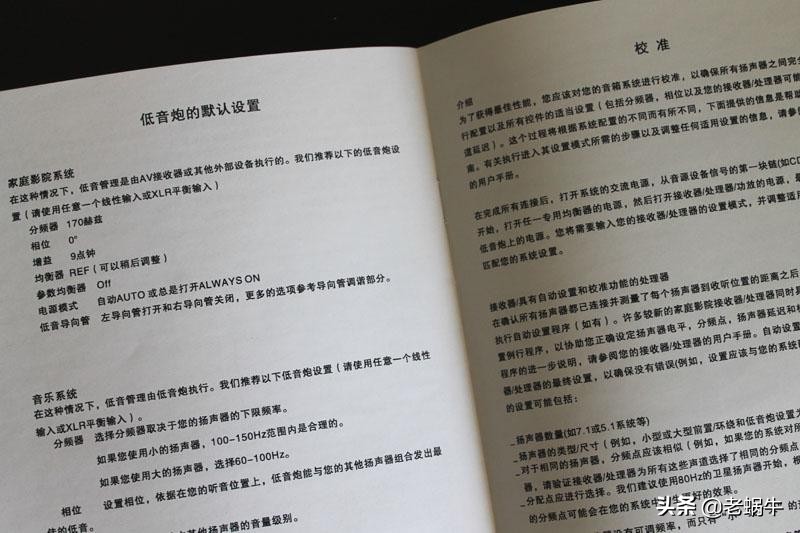 低音炮的默认设置
家庭影院系统
在这种情况下，低音管理是由AV接收器或其他外部设备执行的。我们推荐以下的低音炮设
置（请使用任意一个线性输入或XLR平衡输入）
分频器 170赫兹
相位 0°
增益 9点钟
均衡器 REF（可以稍后调整）
参数均衡器 Off
电源模式 自动AUTO 或总是打开ALWAYS ON
低音导向管 左导向管打开和右导向管关闭，更多的选项参考导向管调谐部分。
音乐系统
在这种情况下，低音管理由低音炮执行。我们推荐以下低音炮设置（请使用任意一个线性
输入或XLR平衡输入）。
分频器 选择分频器取决于您的扬声器的下限频率。
如果您使用小的扬声器，100-150Hz范围内是合理的。
如果您使用大的扬声器，选择60-100Hz。
相位 设置相位，依据在您的听音位置上，低音炮能与您的其他扬声器组合发出最
佳的低音。
其他扬声器的音量级别。
校准
介绍
为了获得最佳性能，您应该对您的音箱系统进行校准，以确保所有扬声器之间完全
行配置以及所有控件的适当设置（包括分频器，相位以及您的接收器/处理器可能
道延迟）。这个过程将根据系统配置的不同而有所不同，下面提供的信息是帮助
南。有关执行进入其设置模式所需的步骤以及调整任何适用设置的信息，请参阅
的用户手册。
在完成所有连接后，打开系统的交流电源，从音源设备信号的第一块链(如CD
开始，打开任一专用均衡器的电源，然后打开接收器/处理器/功放的电源，最
低音炮上的电源。您将需要输入您的接收器/处理器的设置模式，并调整适用
匹配您的系统设置。
接收器/具有自动设置和校准功能的处理器
在确认所有扬声器都已连接并测量了每个扬声器到收听位置的距离之后
执行自动设置程序（如有）。许多较新的家庭影院接收器/处理器同时具
置例行程序，以协助您正确设定扬声器电平，分频点，扬声器延迟和校
程序的进一步说明，请参阅您的接收器/处理器的用户手册。自动设置
器/处理器的最终设置，以确保没有错误(例如，设置应该与您的系统配
的设置可能包括：
_扬声器数量(如7.1或5.1系统等)
_扬声器的类型/尺寸（例如，小型或大型前置/环绕和低音炮设置为
_对于相同的扬声器，分频点应该相似（例如，如果您的系统对所
器，请验证接收器/处理器为所有这些声道选择了相同的分频点
_分配点应进行选择。我们建议使用80Hz的卫星扬声器开始，根
的分频点可能会在您的系统中 好的效果。
没有可调频率，而只有"小"
头条 @老蜗牛